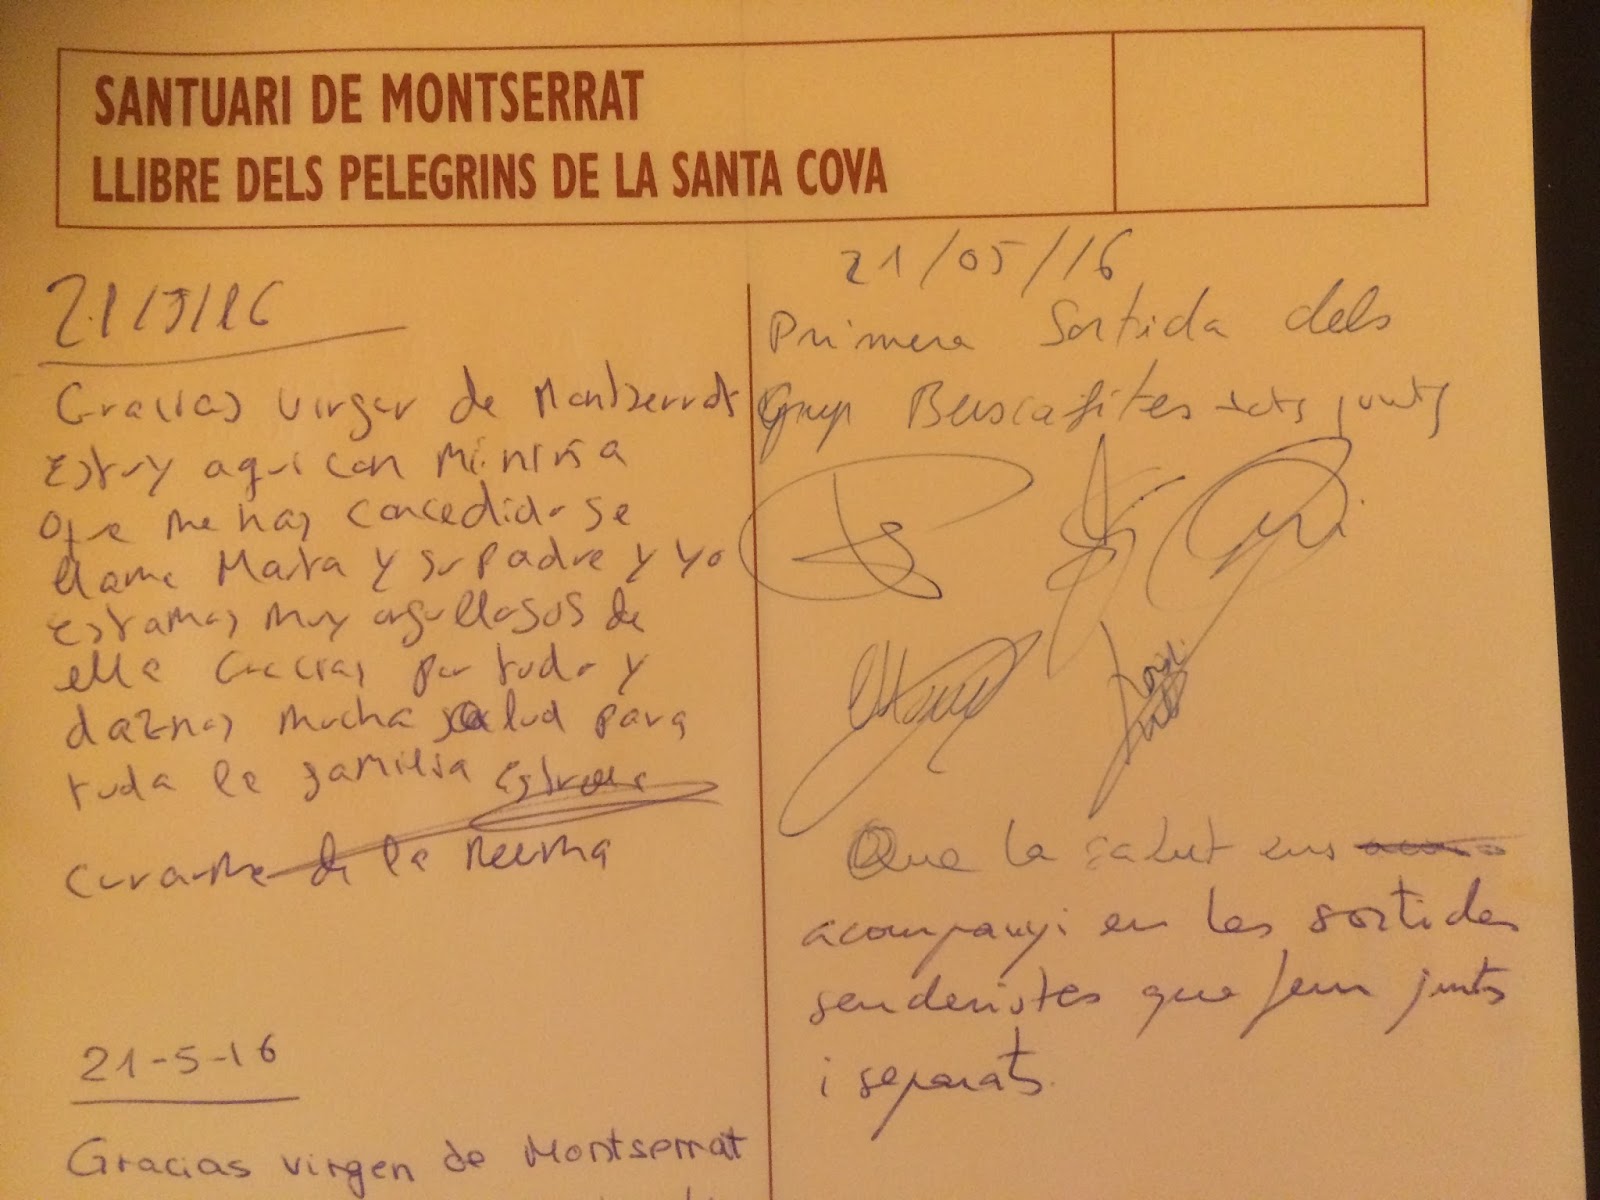 SANTUARI DE MONTSERRAT
LLIBRE DELS PELEGRINS DE LA SANTA COVA
21/5/16
Gracias virgen de Montserrat
Estoy aqui con mi niña
que me has concedido se
llama Marta y su padre y yo
estamos muy orgullosos de
ella Gracias por todo y
daznos mucha salud para
toda la familia
curarme de la
21-5-16
Gracias virgen de Montserrat
21/05/16
Primera Sortida dels
Grup Buscafites tots junts
Que la salut ens
acompanyi en les sortides
senderistes que fem junts
i separats.